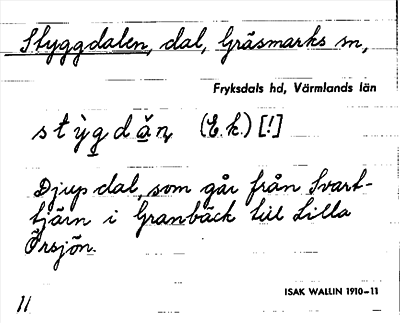 Styggdalen, dal, Gräsmarks sn,
Fryksdals hd, Värmlands län
stỳgdăn (E.k.) [!]
Djup dal, som går från Svart-
tjärn i Granbäck till Lilla
Örsjön.
ISAK WALLIN 1910-11
11